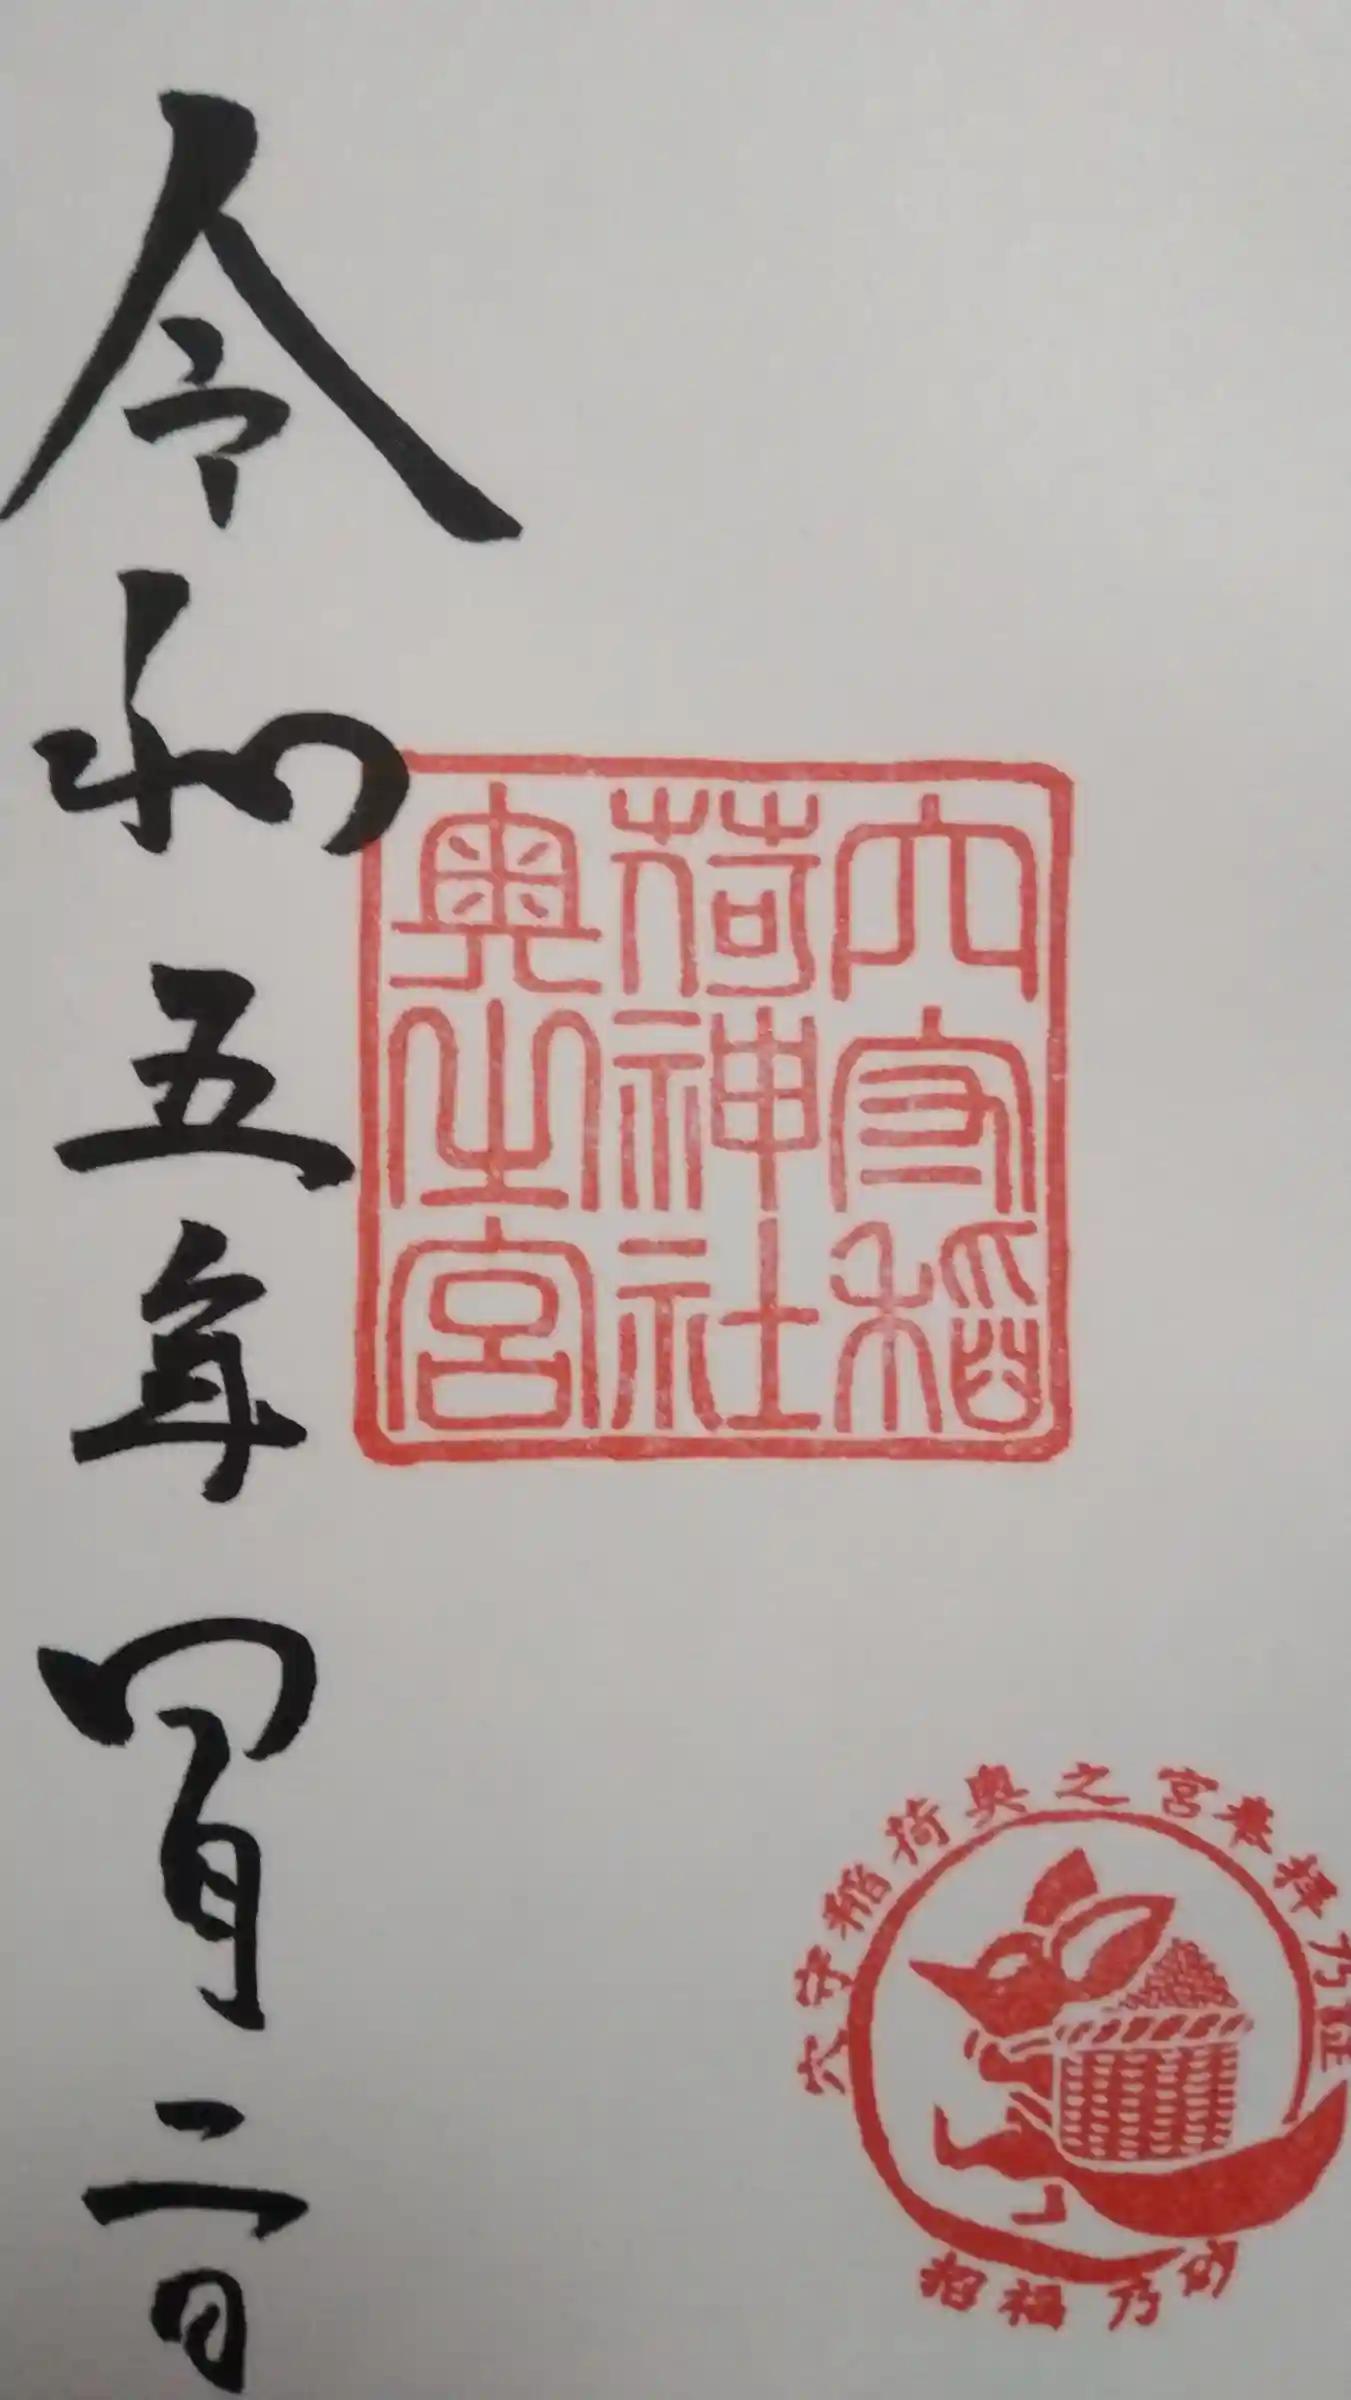 穴守稲
荷神社
奥之宮
令和五年四月二日
穴守稲荷奥之宮参拝乃証
招福乃砂